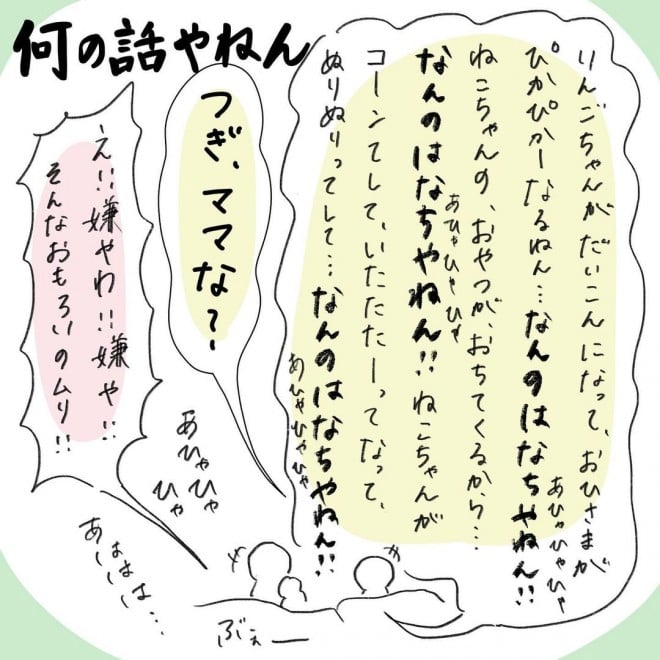 何の話やねん
りんごちゃんがだいこんになって、おひさまが
ぴかぴかーなるねん…なんのはなちやねん!!
あひゃひゃひゃ
ねこちゃんの、おやつが、おちてくるから…
なんのはなちやねん!!ねこちゃんが
あひゃひゃひゃ
コーンてして、いたたたーってなって、
ぬりぬりってして…なんのはなちやねん!!
あひゃひゃひゃ
つぎ、ママな〜
え!!嫌やわ!!嫌や!!
そんなおもろいのムリ!!
あひゃひゃ
ひゃ
あはははは…
ぶえー